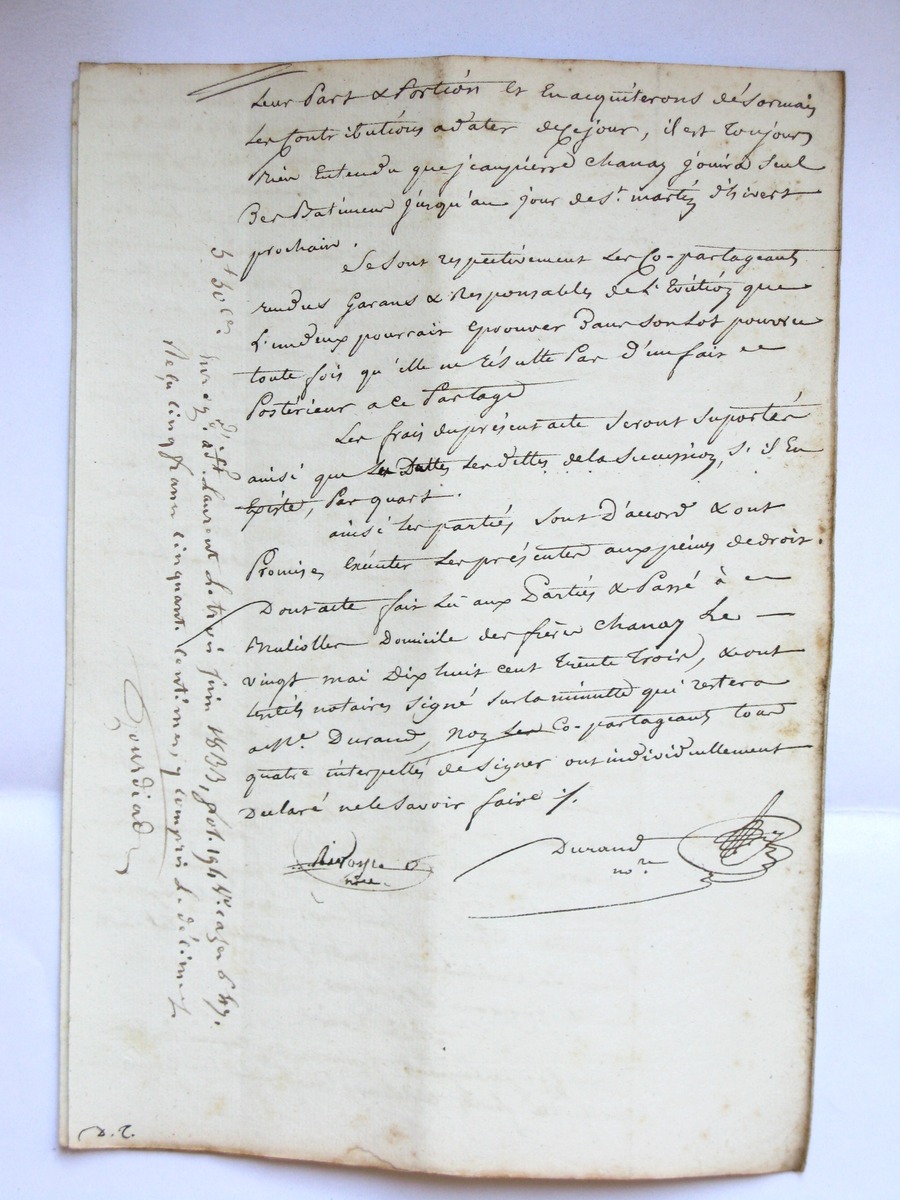 Leur Part & Portion Et En acquiterons désormais
Les Contributions adater deCejour, il est Toujours
Bien Entendu que jeanpierre Chanay jouira Seul
Des Batimens jusqu'au jour de St. martin d'hivert
prochain.
Se Sont respectivement Les Co-partageants
rendus Garans & Responsables de L'Eviction que
L'un deux pourrait Eprouver Dans Son Lot pourvu
toute fois qu'elle ne Résulte Pas d'un fait
Postérieur a Ce Partage
Les frais du présent acte Seront Suportés
ainsi que Les Dettes Les dettes de la Succession, S'il En
Existe, Par quart.
ainsi Les parties Sont D'accord & ont
Promis Exécuter Les présentes aux peines de droit.
Dont acte fait Lu aux Parties & Passé à
Domicile des frères Chanay Le
vingt mai Dix huit Cent Trente Trois, & ont
Lesdits notaires Signé Sur la minutte qui restera
a Me. Durand, Non Les Co-partageants tous
quatre interpellés de Signer ont individuellement
Declaré ne le Savoir faire ./.
Durand
nore
nre.
5f 50 ces
Enreg. à St. Laurent le trois juin 1833, fol. 191 Vo. cases 6 &7.
Reçu cinq francs cinquante centimes, y compris le décime
Gourdiad